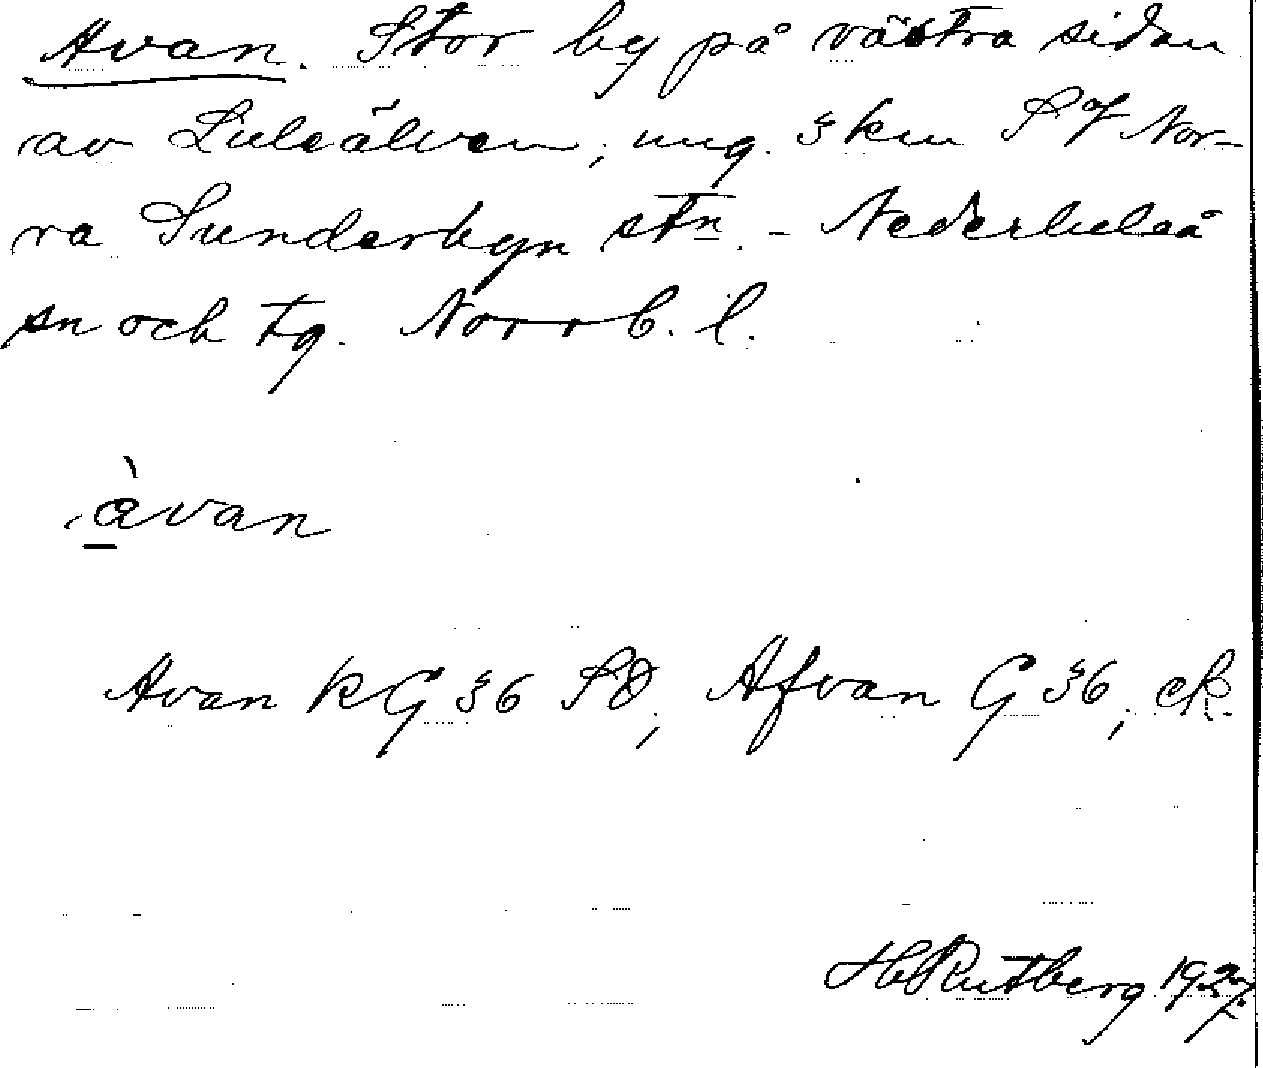 Avan. Stor by på västra sidan
av Luleälven, ung. 3 km S of Nor-
ra Sunderbyn stn. - Nederluleå
sn och tg. Norrb. l.
àvan
Avan KG 36 SO, Afvan G 36, ek.
H Rutberg 1927.